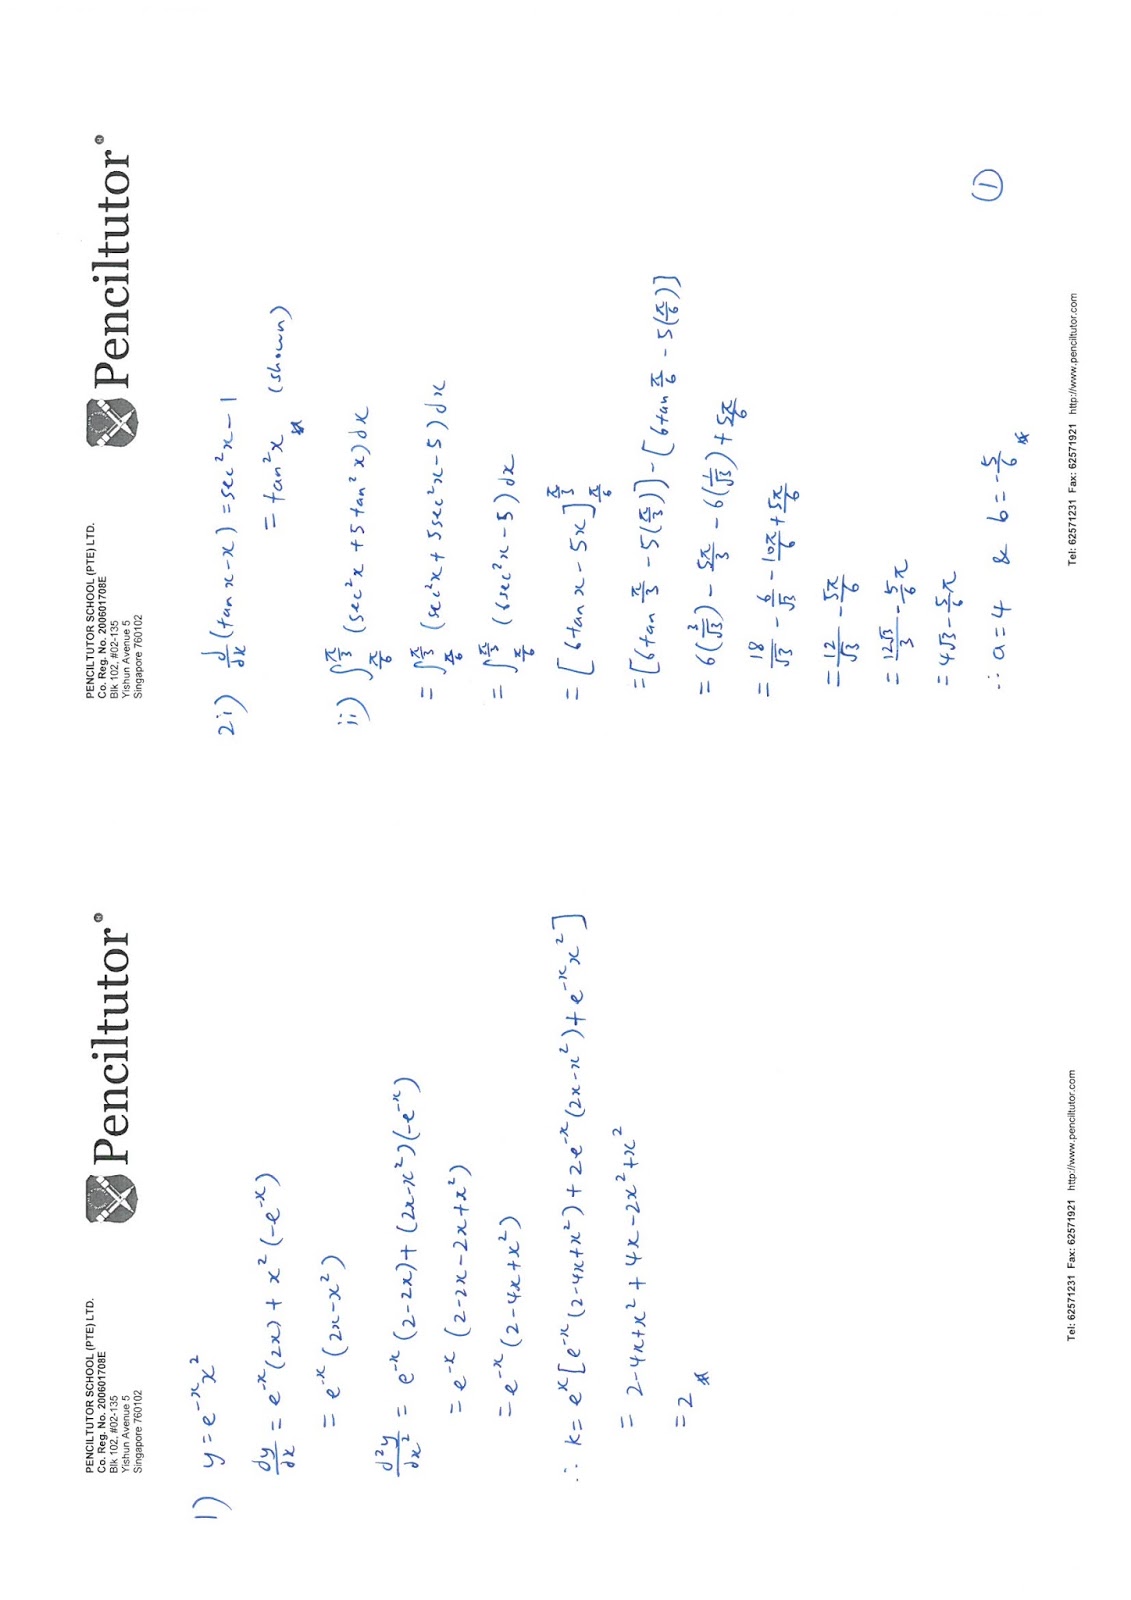 PENCILTUTOR SCHOOL (PTE) LTD.
Co. Reg. No. 200601708E
Blk 102, #02-135
Yishun Avenue 5
Singapore 760102
Penciltutor®
1) y = e^{-x} x^2
dy/dx = e^{-x}(2x) + x^2(-e^{-x})
= e^{-x}(2x - x^2)
d^2y/dx^2 = e^{-x}(2-2x) + (2x-x^2)(-e^{-x})
= e^{-x}(2-2x-2x+x^2)
= e^{-x}(2-4x+x^2)
∴ k = e^x[e^{-x}(2-4x+x^2) + 2e^{-x}(2x-x^2) + e^{-x}x^2]
= 2-4x+x^2+4x-2x^2+x^2
= 2
Tel: 62571231 Fax: 62571921 http://www.penciltutor.com
PENCILTUTOR SCHOOL (PTE) LTD.
Co. Reg. No. 200601708E
Blk 102, #02-135
Yishun Avenue 5
Singapore 760102
Penciltutor®
2i) d/dx(tan x - x) = sec^2x - 1
= tan^2x (shown)
ii) ∫_{π/6}^{π/3} (sec^2x + 5tan^2x)dx
= ∫_{π/6}^{π/3} (sec^2x + 5sec^2x - 5)dx
= ∫_{π/6}^{π/3} (6sec^2x - 5)dx
= [6tan x - 5x]_{π/6}^{π/3}
= [6tan π/3 - 5(π/3)] - [6tan π/6 - 5(π/6)]
= 6(3/√3) - 5π/3 - 6(1/√3) + 5π/6
= 18/√3 - 6/√3 - 10π/6 + 5π/6
= 12/√3 - 5π/6
= 12√3/3 - 5/6π
= 4√3 - 5/6π
∴ a = 4 & b = -5/6
①
Tel: 62571231 Fax: 62571921 http://www.penciltutor.com